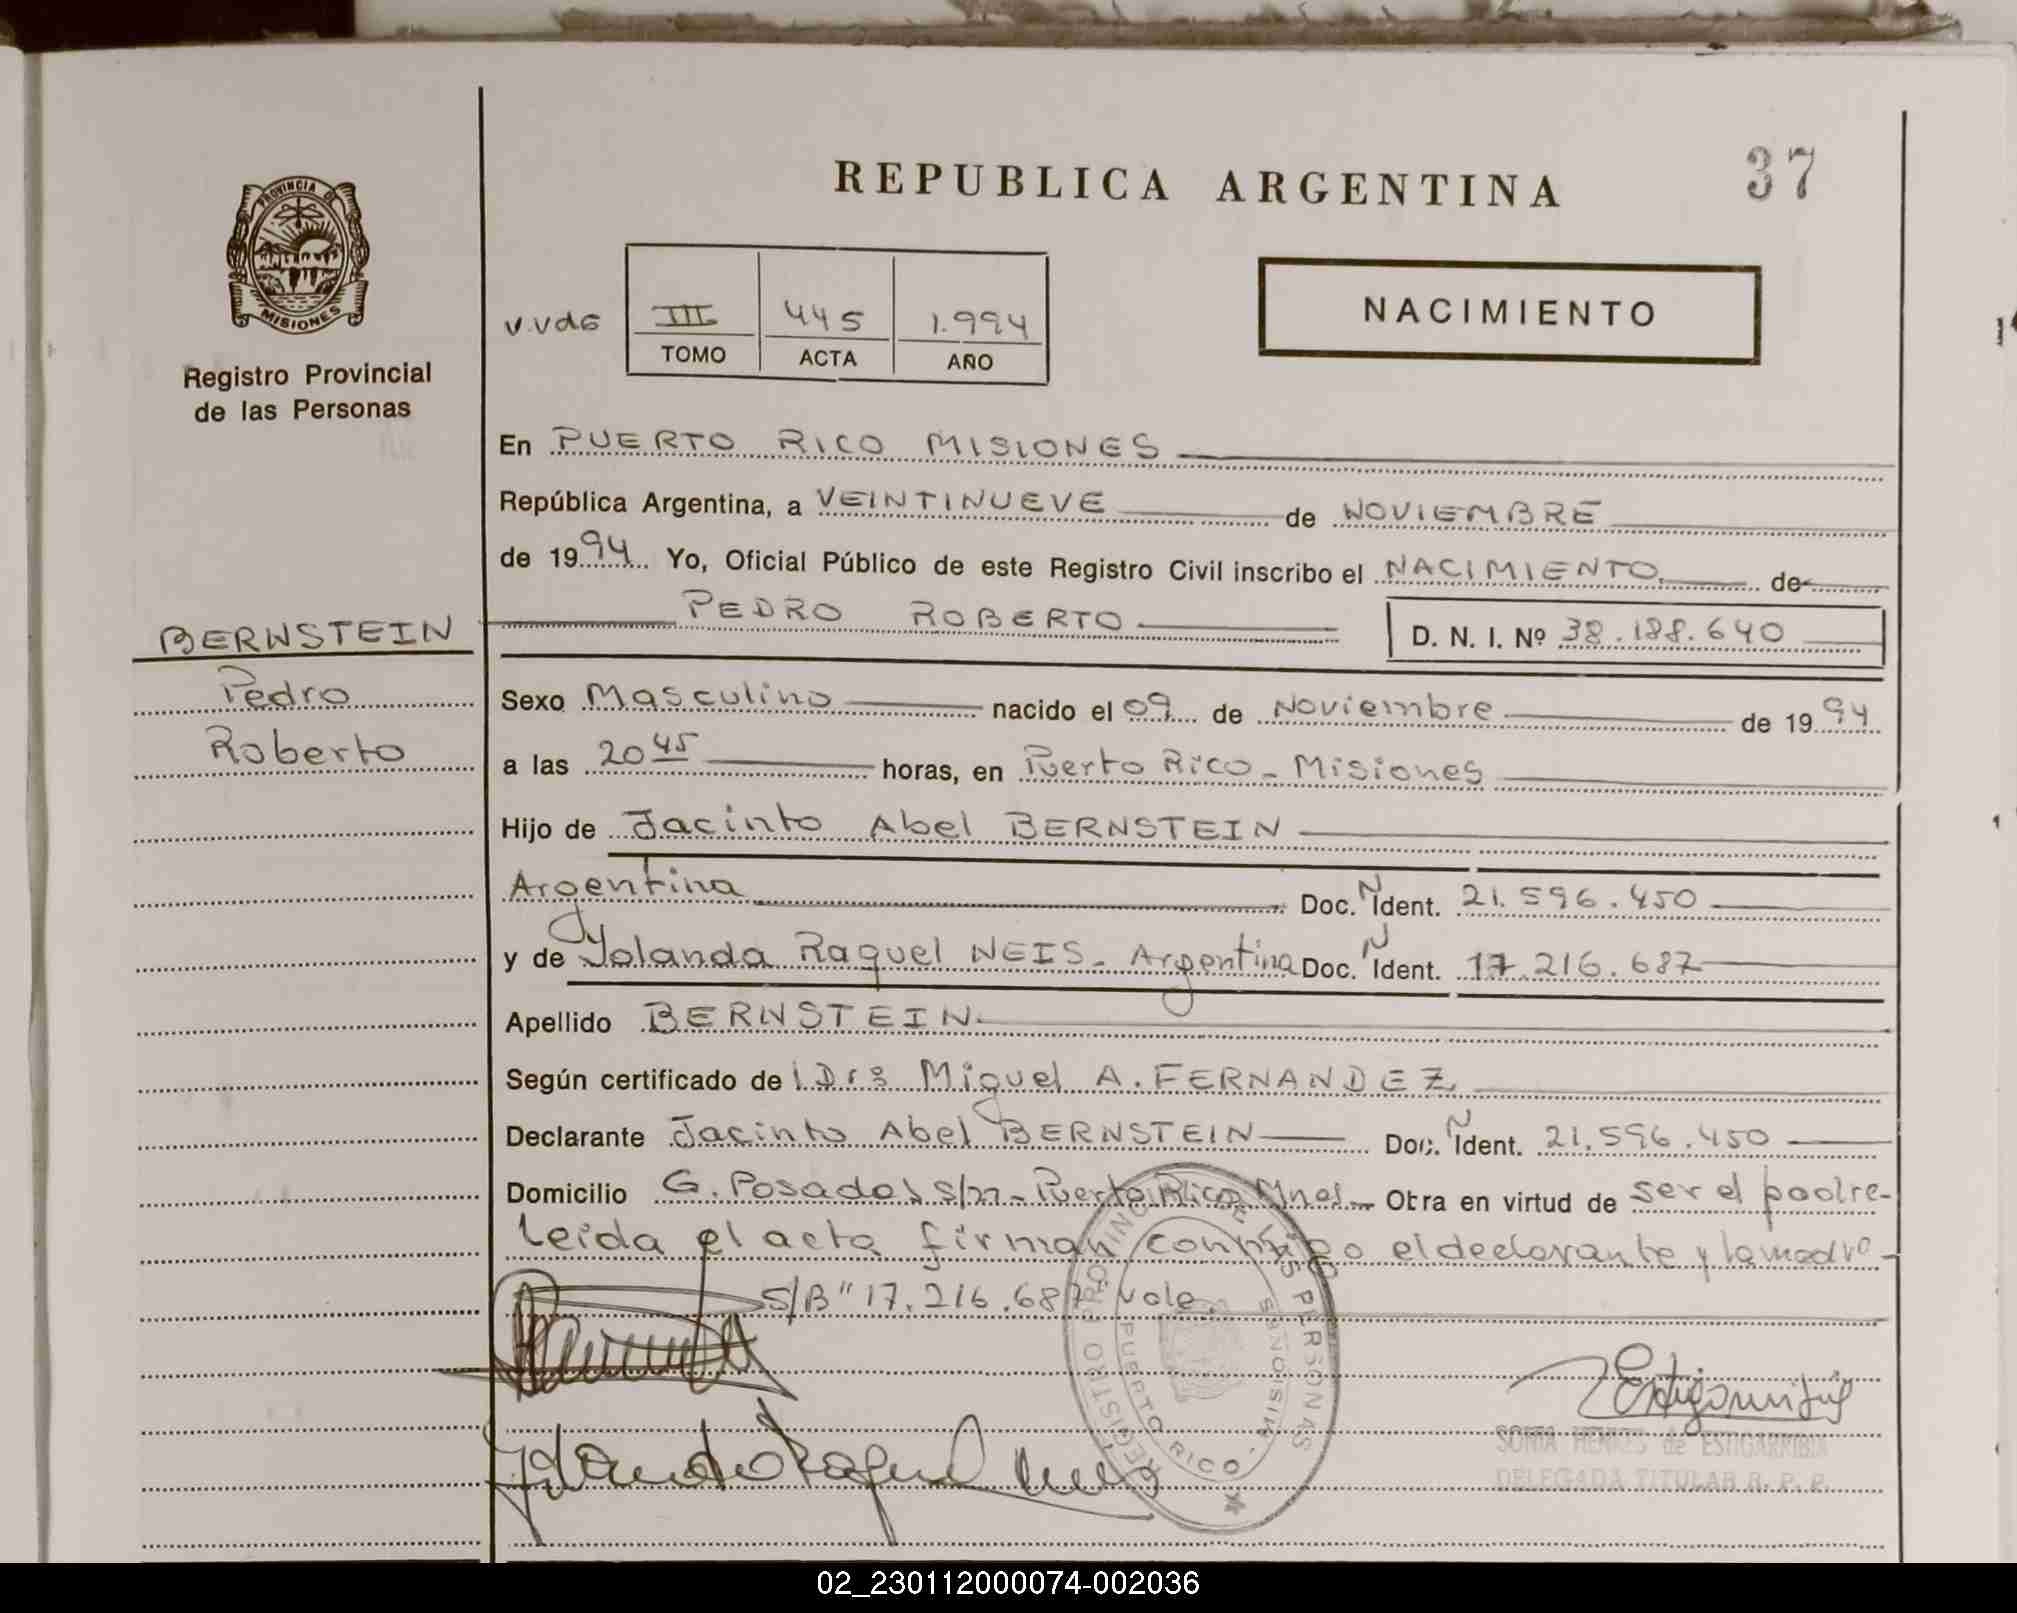 REPUBLICA ARGENTINA
37
PROVINCIA DE
MISIONES
Registro Provincial
de las Personas
III 445 1.994
TOMO ACTA AÑO
NACIMIENTO
En PUERTO RICO MISIONES
República Argentina, a VEINTINUEVE de NOVIEMBRE
de 1994 Yo, Oficial Público de este Registro Civil inscribo el NACIMIENTO de
PEDRO ROBERTO D. N. I. Nº 38.188.640
BERNSTEIN
Pedro
Roberto
Sexo Masculino nacido el 09 de Noviembre de 1994
a las 20 45 horas, en Puerto Rico - Misiones
Hijo de Jacinto Abel BERNSTEIN
Argentina Doc. N Ident. 21.596.450
y de Yolanda Raquel NEIS - Argentina Doc. N Ident. 17.216.687
Apellido BERNSTEIN
Según certificado de Miguel A. FERNANDEZ
Declarante Jacinto Abel BERNSTEIN Doc. N Ident. 21.596.450
Domicilio G. Posadas s/n - Puerto Rico Mnes - Obra en virtud de ser el padre -
Leida el acta firman conmigo el declarante y la madre -
S/B "17.216.687" vale.
REGISTRO PROVINCIAL DE LAS PERSONAS
PUERTO RICO - MISIONES
Yolanda Raquel Neis
de ESTIGARRIBIA
DELEGADA TITULAR R. P. P.
02_230112000074-002036